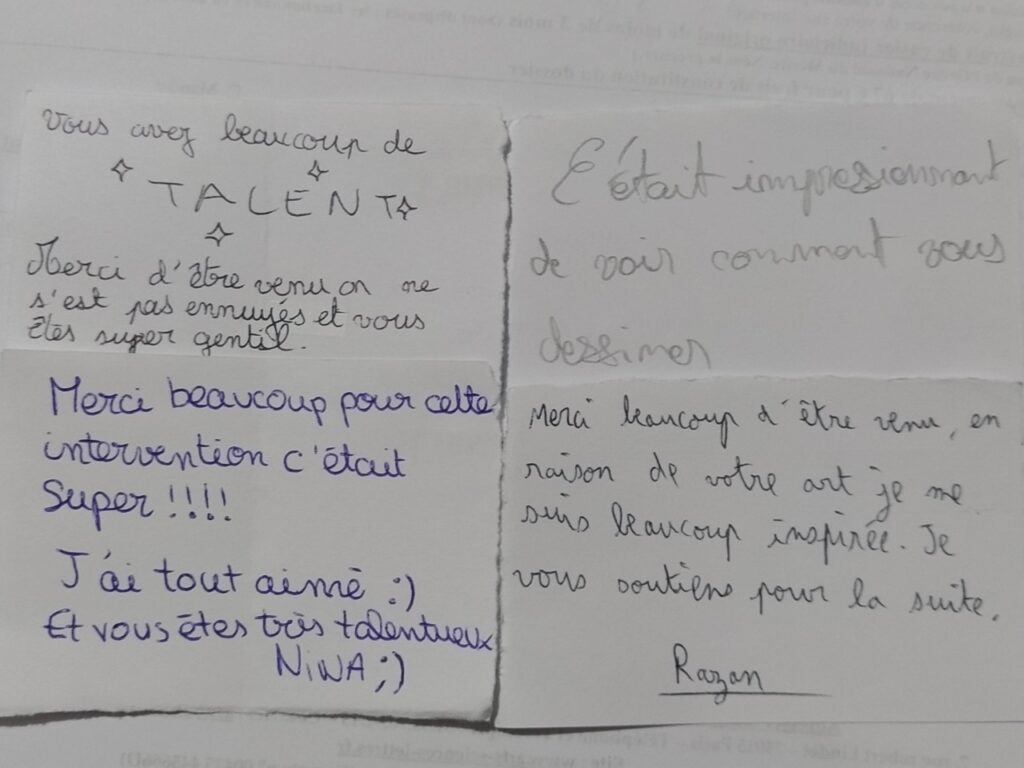 Vous avez beaucoup de
TALENT
Merci d'être venu on ne
s'est pas ennuyés et vous
êtes super gentil.
Merci beaucoup pour cette
intervention c'était
super !!!!
J'ai tout aimé :)
Et vous êtes très talentueux
NiNA ;)
C'était impresionnant
de voir comment vous
dessiner
Merci beaucoup d'être venu, en
raison de votre art je me
suis beaucoup inspirée. Je
vous soutiens pour la suite.
Razan